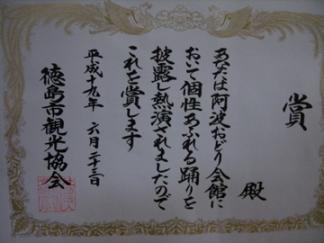 賞
殿
あなたは阿波おどり会館に
おいて個性あふれる踊りを
披露し熱演されましたので
これを賞します
平成十九年 六月二十三日
徳島市観光協会